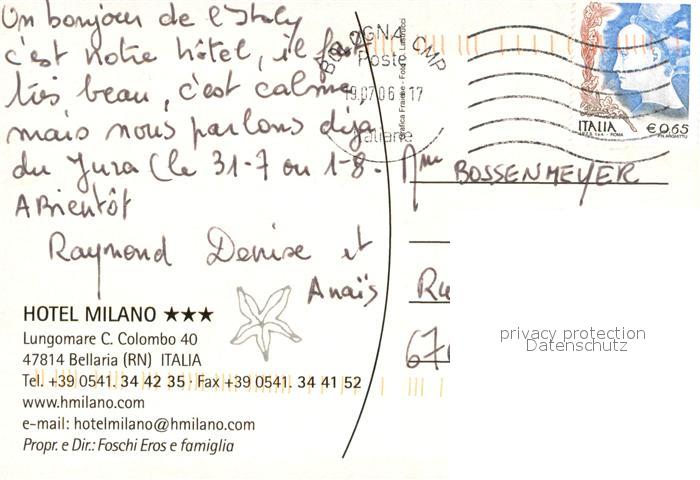 Un bonjour de l'Italy
c'est notre hôtel, il fait
très beau, c'est calme,
mais nous parlons déja
du Jura (le 31-7 ou 1-8.
A Bientôt
Raymond Denise et
Anaïs
HOTEL MILANO ★★★
Lungomare C. Colombo 40
47814 Bellaria (RN) ITALIA
Tel. +39 0541. 34 42 35 - Fax +39 0541. 34 41 52
www.hmilano.com
e-mail: hotelmilano@hmilano.com
Propr. e Dir.: Foschi Eros e famiglia
BOLOGNA CMP
Poste
19.07.06 17
Italiane
ITALIA
€ 0,65
Mme BOSSENMEYER
Ru
67
privacy protection
Datenschutz